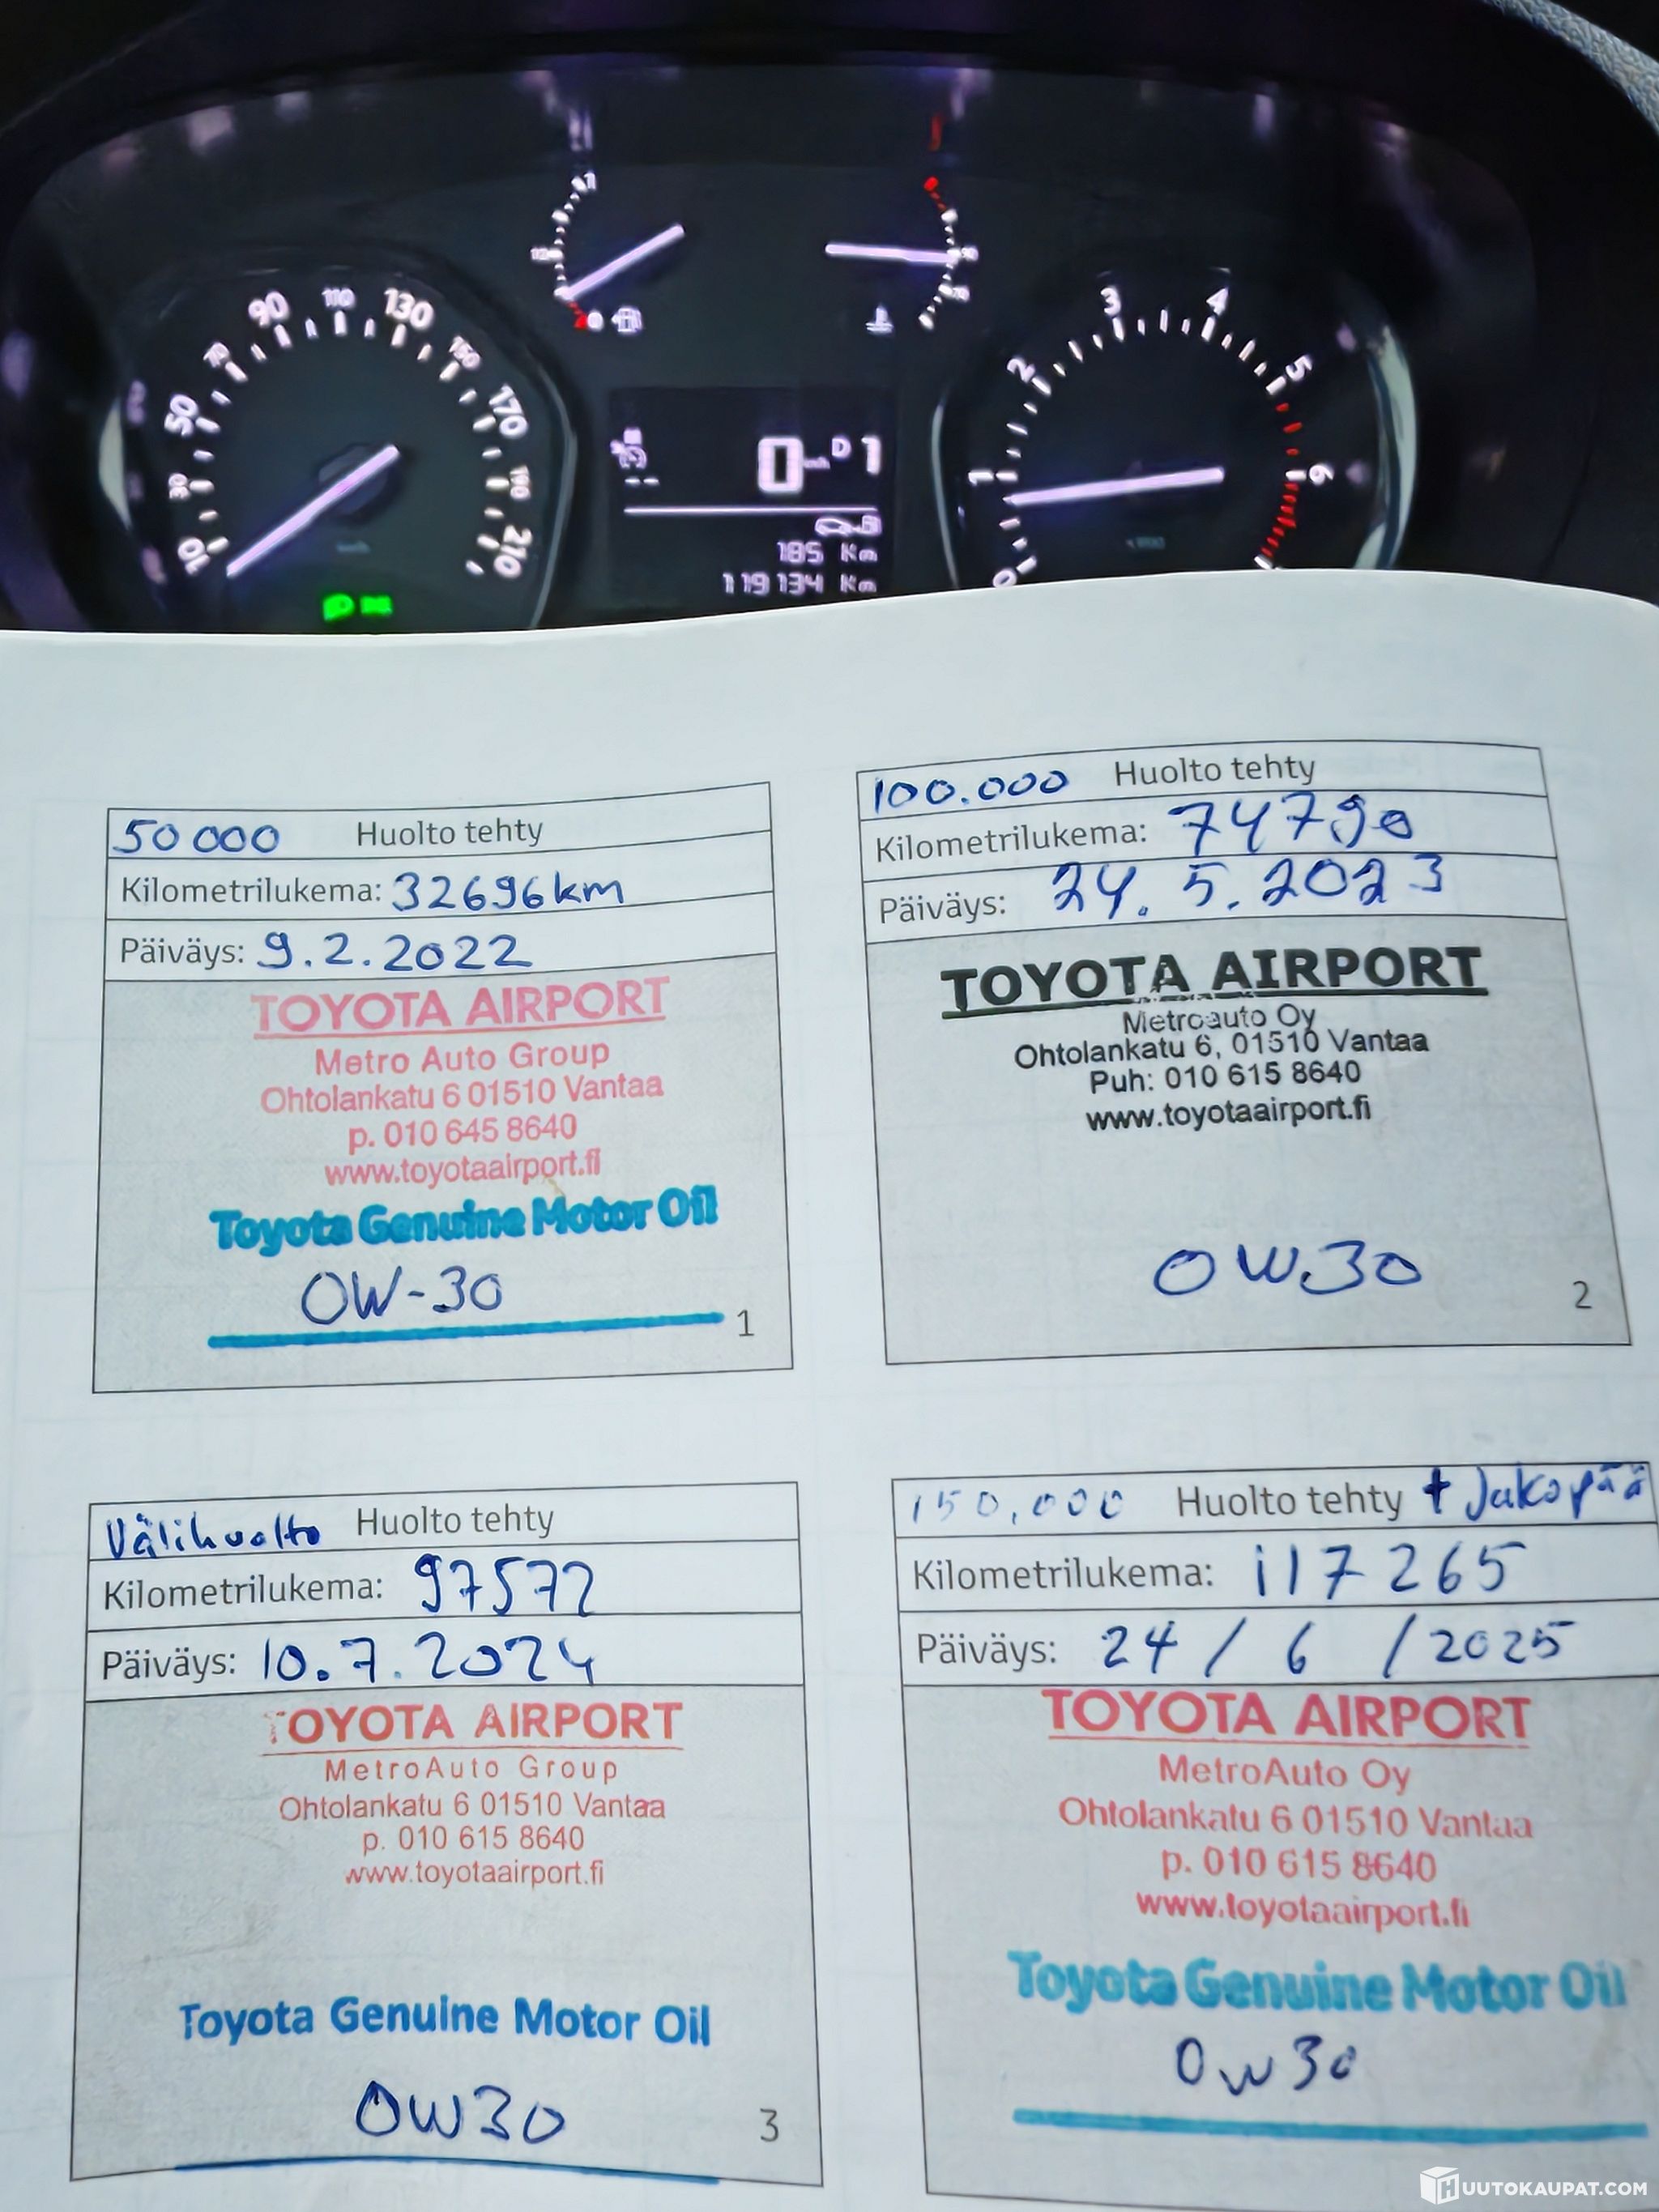 90 110 130
70 150
50 170
30 190
10 210
1
90
70
0 km/h D 1
185 Km
119134 Km
0 1 2 3 4 5 6
50 000 Huolto tehty
Kilometrilukema: 32696km
Päiväys: 9.2.2022
TOYOTA AIRPORT
Metro Auto Group
Ohtolankatu 6 01510 Vantaa
p. 010 645 8640
www.toyotaairport.fi
Toyota Genuine Motor Oil
0W-30
1
100.000 Huolto tehty
Kilometrilukema: 74790
Päiväys: 24.5.2023
TOYOTA AIRPORT
Metroauto Oy
Ohtolankatu 6, 01510 Vantaa
Puh: 010 615 8640
www.toyotaairport.fi
0W30
2
Välihuolto Huolto tehty
Kilometrilukema: 97572
Päiväys: 10.7.2024
TOYOTA AIRPORT
MetroAuto Group
Ohtolankatu 6 01510 Vantaa
p. 010 615 8640
www.toyotaairport.fi
Toyota Genuine Motor Oil
0W30
3
150,000 Huolto tehty + Jakopää
Kilometrilukema: 117265
Päiväys: 24/6/2025
TOYOTA AIRPORT
MetroAuto Oy
Ohtolankatu 6 01510 Vantaa
p. 010 615 8640
www.toyotaairport.fi
Toyota Genuine Motor Oil
0w30
HUUTOKAUPAT.COM